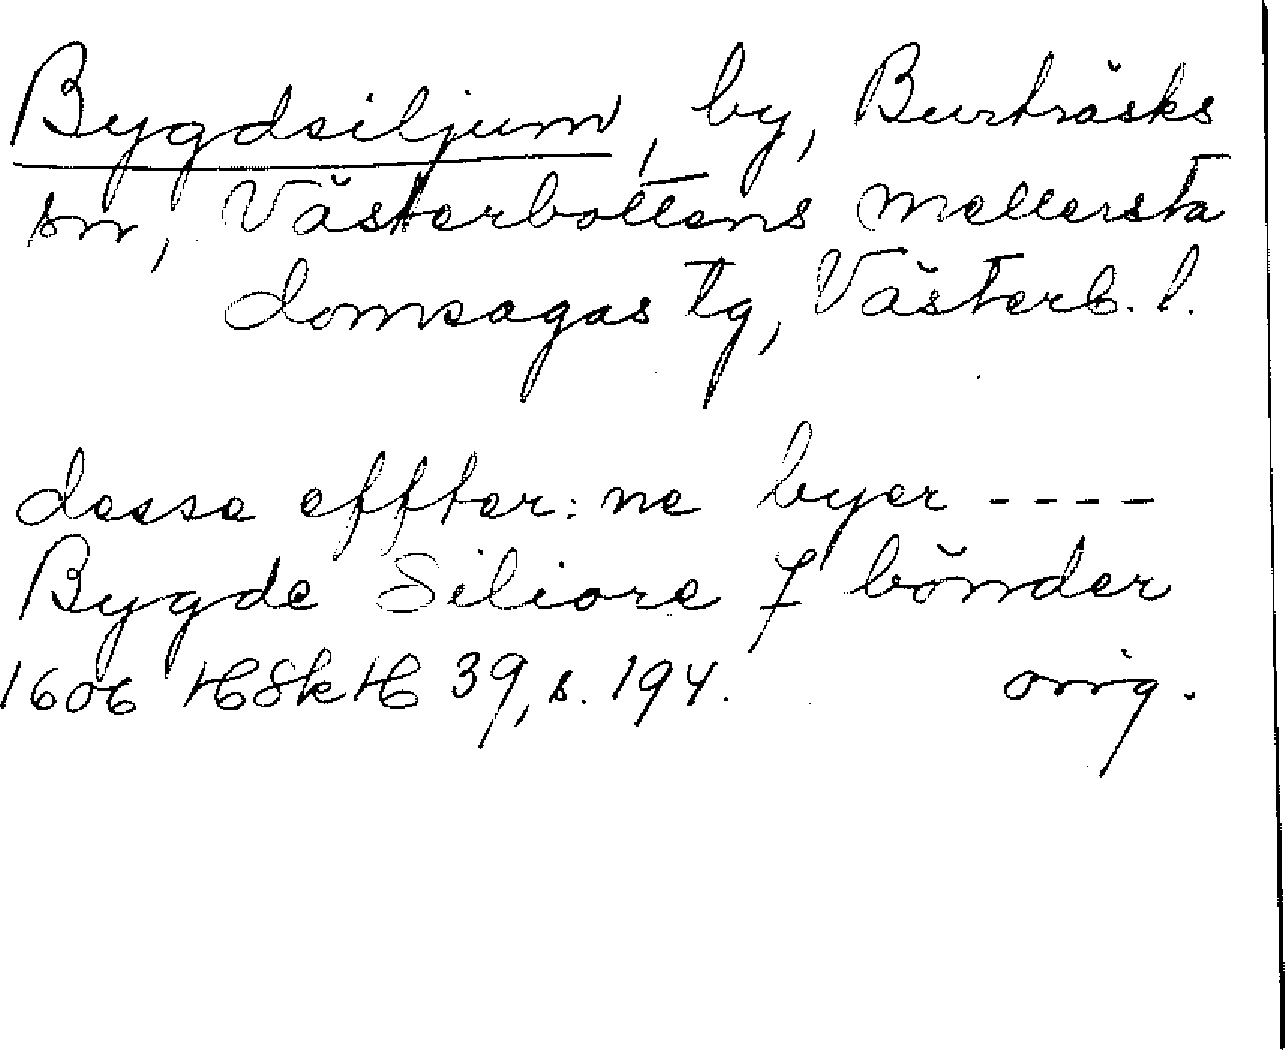 Bygdsiljum, by, Burträsks
sn, Västerbottens mellersta
domsagas tg, Västerb. l.
desse effter: ne byer ----
Bygde Siliore 7 bönder
1606 HSkH 39, s. 194. orig.